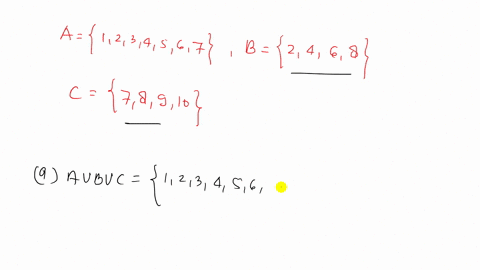 A = {1, 2, 3, 4, 5, 6, 7} , B = {2, 4, 6, 8}
C = {7, 8, 9, 10}
(a) A∪B∪C = {1, 2, 3, 4, 5, 6,